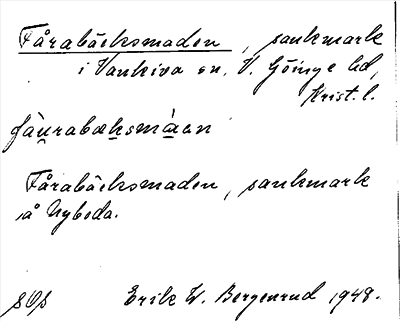 Fårabäcksmaden, sankmark
i Vankiva sn, V. Göinge hd,
Krist. l.
fàu̱rabæḵsmá̱en
Fårabäcksmaden, sankmark
å Nyboda.
Erik W. Bergenrud 1948.